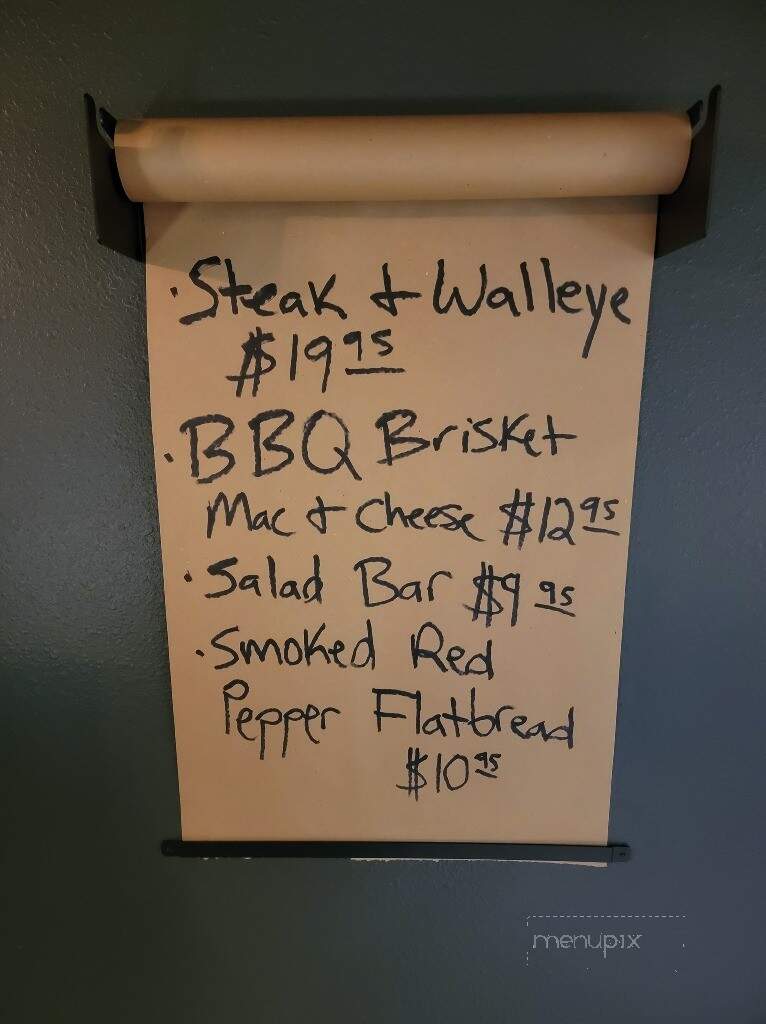 · Steak & Walleye
$19 95
· BBQ Brisket
Mac & Cheese $12 95
· Salad Bar $9 95
· Smoked Red
Pepper Flatbread
$10 95
menupix